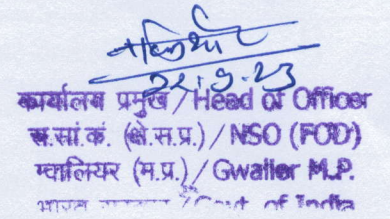 22.9.23
कार्यालय प्रमुख / Head of Officer
स.सां.कं. (क्षे.स.प्र.) / NSO (FOD)
ग्वालियर (म.प्र.) / Gwalier M.P.
भारत सरकार / Govt. of India